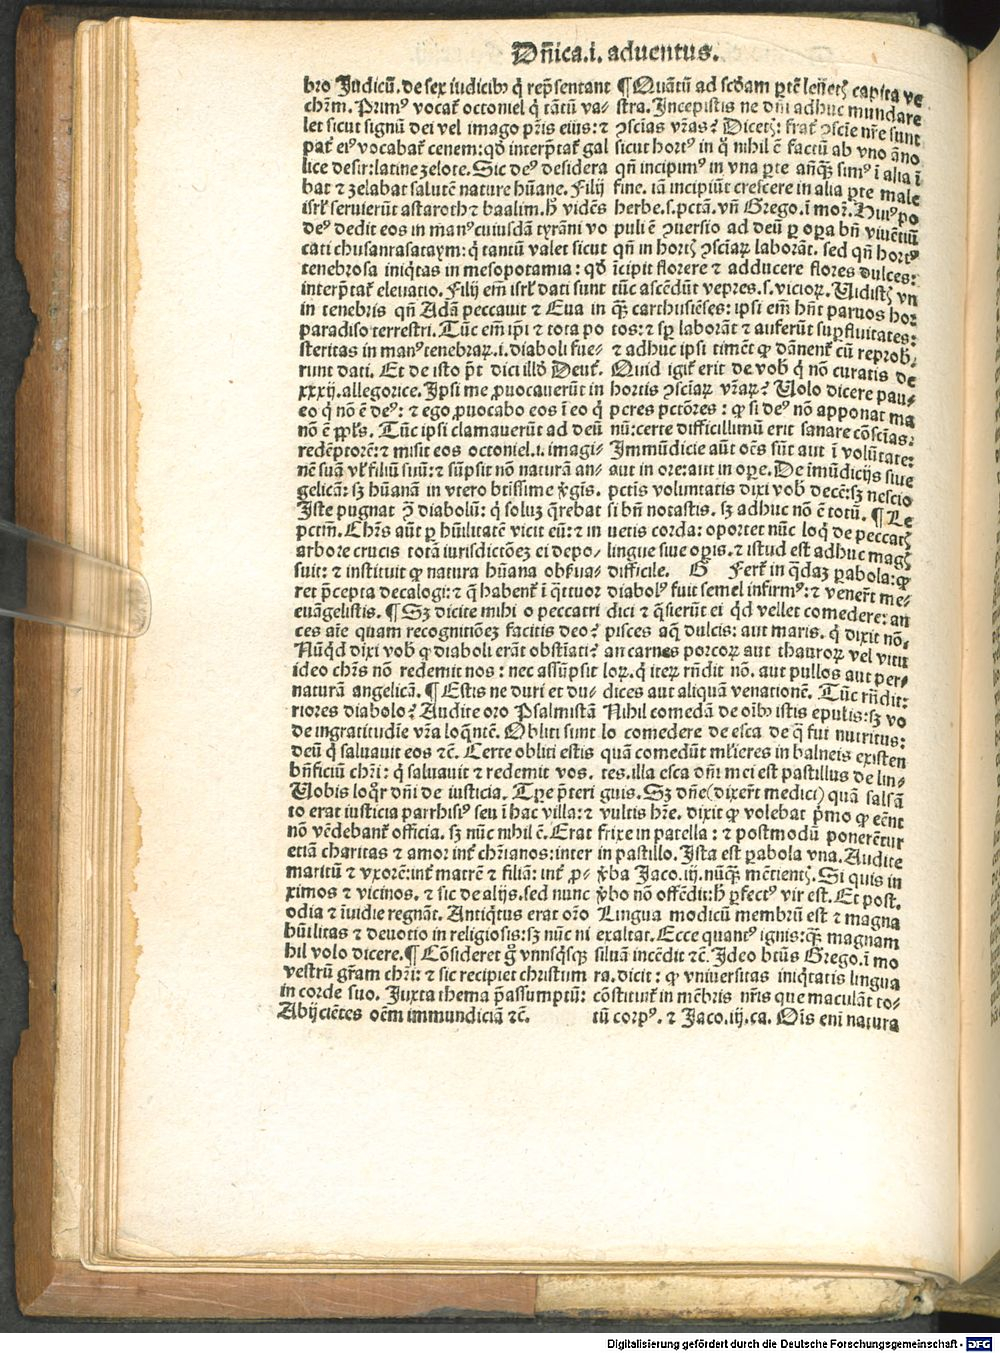 Dn̄ica.i. aduentus.
bro Judicū. de sex iudicibꝰ q̇ rep̄sentant
chr̄m. Primꝰ vocať octoniel q̇ tātū va-
let sicut signū dei vel imago pr̄is eius: ⁊
pať eiꝰ vocabať cenem: qḋ interp̄tať gal
lice desir: latine zelote. Sic deꝰ desidera
bat ⁊ zelabat salutē nature hūane. Filij
isrl̄ seruierūt astaroth ⁊ baalim. h̄ vidēs
deꝰ dedit eos in manꝰ cuiusdā tyrāni vo
cati chusanrasataym: q̇ tantū valet sicut
tenebrosa iniq̇tas in mesopotamia: qḋ
interp̄tať eleuatio. Filij em̄ isrl̄ dati sunt
in tenebris qn̄ Adā peccauit ⁊ Eua in
paradiso terrestri. Tūc em̄ ip̄i ⁊ tota po
steritas in manꝰ tenebraꝝ.i. diaboli fue-
runt dati. Et de isto p̄t dici illḋ Deuť.
xxxij. allegorice. Ipsi me ꝓuocauerūt in
eo q̇ nō ē deꝰ: ⁊ ego ꝓuocabo eos ī eo q̇
nō ē ppl̄s. Tūc ipsi clamauerūt ad deū
redēptorē: ⁊ misit eos octoniel.i. imagi-
nē suā vľ filiū suū: ⁊ sūpsit nō naturā an-
gelicā: sꝫ hūanā in vtero btissime v̇gīs.
Iste pugnat ꝯ diabolū: q̇ soluꝫ q̄rebat
pctm̄. Chr̄s aūt ꝑ hūilitatē vicit eū: ⁊ in
arbore crucis totā iurisdictōeꝫ ei depo-
suit: ⁊ instituit ꝙ natura hūana obẛua-
ret p̄cepta decalogi: ⁊ q̄ habenť ī q̇ttuor
euāgelistis. ¶ Sꝫ dicite mihi o peccatri
ces aīe quam recognitiōeꝫ facitis deo?
Nūq̇d dixi vob̄ ꝙ diaboli erāt obstīati?
ideo chr̄s nō redemit nos: nec assūpsit
naturā angelicā. ¶ Estis ne duri et du-
riores diabolo? Audite oro Psalmistā
de ingratitudīe vr̄a loq̄ntē. Obliti sunt
deū q̇ saluauit eos ⁊c̄. Certe obliti estis
bn̄ficiū chr̄i: q̇ saluauit ⁊ redemit vos.
Uobis loq̇ꝛ dn̄i de iusticia. Tꝑe p̄teri
to erat iusticia parrhisiꝰ seu ī hac villa: ⁊
nō vēdebanť officia. sꝫ nūc nihil ē. Erat
etiā charitas ⁊ amor inť chr̄ianos: inter
maritū ⁊ vxorē: inť matrē ⁊ filiā: inť ꝓ-
ximos ⁊ vicinos. ⁊ sic de alijs. sed nunc
odia ⁊ īuidie regnāt. Antiq̇tus erat or̄o
hūilitas ⁊ deuotio in religiosis: sꝫ nūc ni
hil volo dicere. ¶ Cōsideret g̊ vnusq̇sqꝫ
vestrū gr̄am chr̄i: ⁊ sic recipiet christum
in corde suo. Juxta thema p̄assumptū:
Abijciētes oēm immundiciā ⁊c̄.
¶ Quātū ad scḋam ꝑtē leuetꝭ capita ve
stra. Incepistis ne dn̄i adhuc mundare
ꝯscīas vr̄as? Dicetꝭ: frať ꝯscīe nr̄e sunt
sicut hortꝰ in q̇ nihil ē factū ab vno āno
qn̄ incipimꝰ in vna ꝑte añq̄ꝫ simꝰ ī alia ī
fine. iā incipiūt crescere in alia ꝑte male
herbe.s.pctā. vn̄ Grego. ī moꝝ. Huiꝰ po
puli ē ꝯuersio ad deū ꝑ oꝑa bn̄ viuētiū
qn̄ in hortꝭ ꝯscīaꝝ laborāt. sed qn̄ hortꝰ
īcipit florere ⁊ adducere flores dulces:
tūc ascēdūt vepres.s. vicioꝝ. Uidistꝭ vn
q̄ꝫ carthusiēses: ipsi em̄ hn̄t paruos hor
tos: ⁊ sꝑ laborāt ⁊ auferūt suꝑfluitates:
⁊ adhuc ipsi timēt ꝙ dānenť cū reprob̄.
Quid igiť erit de vob̄ q̇ nō curatis de
hortis ꝯscīaꝝ vr̄aꝝ? Uolo dicere pau-
peres pctōres: ꝙ si deꝰ nō apponat ma
nū: certe difficillimū erit sanare cōscīas.
Immūdicie aūt oēs sūt aut ī volūtate:
aut in ore: aut in oꝑe. De īmūdicijs siue
pctis voluntatis dixi vob̄ decē: sꝫ nescio
si bn̄ notastis. sꝫ adhuc nō ē totū. ¶ Le
uetis corda: oportet nūc loq̇ de peccatꝭ
lingue siue oꝑis. ⁊ istud est adhuc magꝭ
difficile. G Ferť in q̇daꝫ ꝑabola: ꝙ
diabolꝰ fuit semel infirmꝰ: ⁊ venerť me-
dici ⁊ q̄sierūt ei q̇d vellet comedere: an
pisces aq̄ dulcis: aut maris. q̇ dixit nō.
an carnes porcoꝝ aut thauroꝝ vel vitu
loꝝ. q̇ iteꝝ rn̄dit nō. aut pullos aut per-
dices aut aliquā venationē. Tūc rn̄dit:
Nihil comedā de oībꝰ istis epulis: sꝫ vo
lo comedere de esca de q̄ fui nutritus:
quā comedūt mľieres in balneis existen
tes. illa esca dn̄i mei est pastillus de lin-
guis. Sꝫ dn̄e (dixerť medici) quā salsā
vultis hr̄e. dixit ꝙ volebat p̄mo ꝙ eēnt
frixe in patella: ⁊ postmodū ponerētur
in pastillo. Ista est ꝑabola vna. Audite
v̇ba Jaco.iij. nūq̄ꝫ mētientꝭ. Si quis in
v̇bo nō offēdit: h̄ ꝑfectꝰ vir est. Et post.
Lingua modicū membrū est ⁊ magna
exaltat. Ecce quantꝰ ignis: q̄ꝫ magnam
siluā incēdit ⁊c̄. Ideo btūs Grego. ī mo
ra. dicit: ꝙ vniuersitas iniq̇tatis lingua
cōstituiť in mēbris nr̄is que maculāt to-
tū corpꝰ. ⁊ Jaco.iij.ca. Oīs eni natura
Digitalisierung gefördert durch die Deutsche Forschungsgemeinschaft - DFG